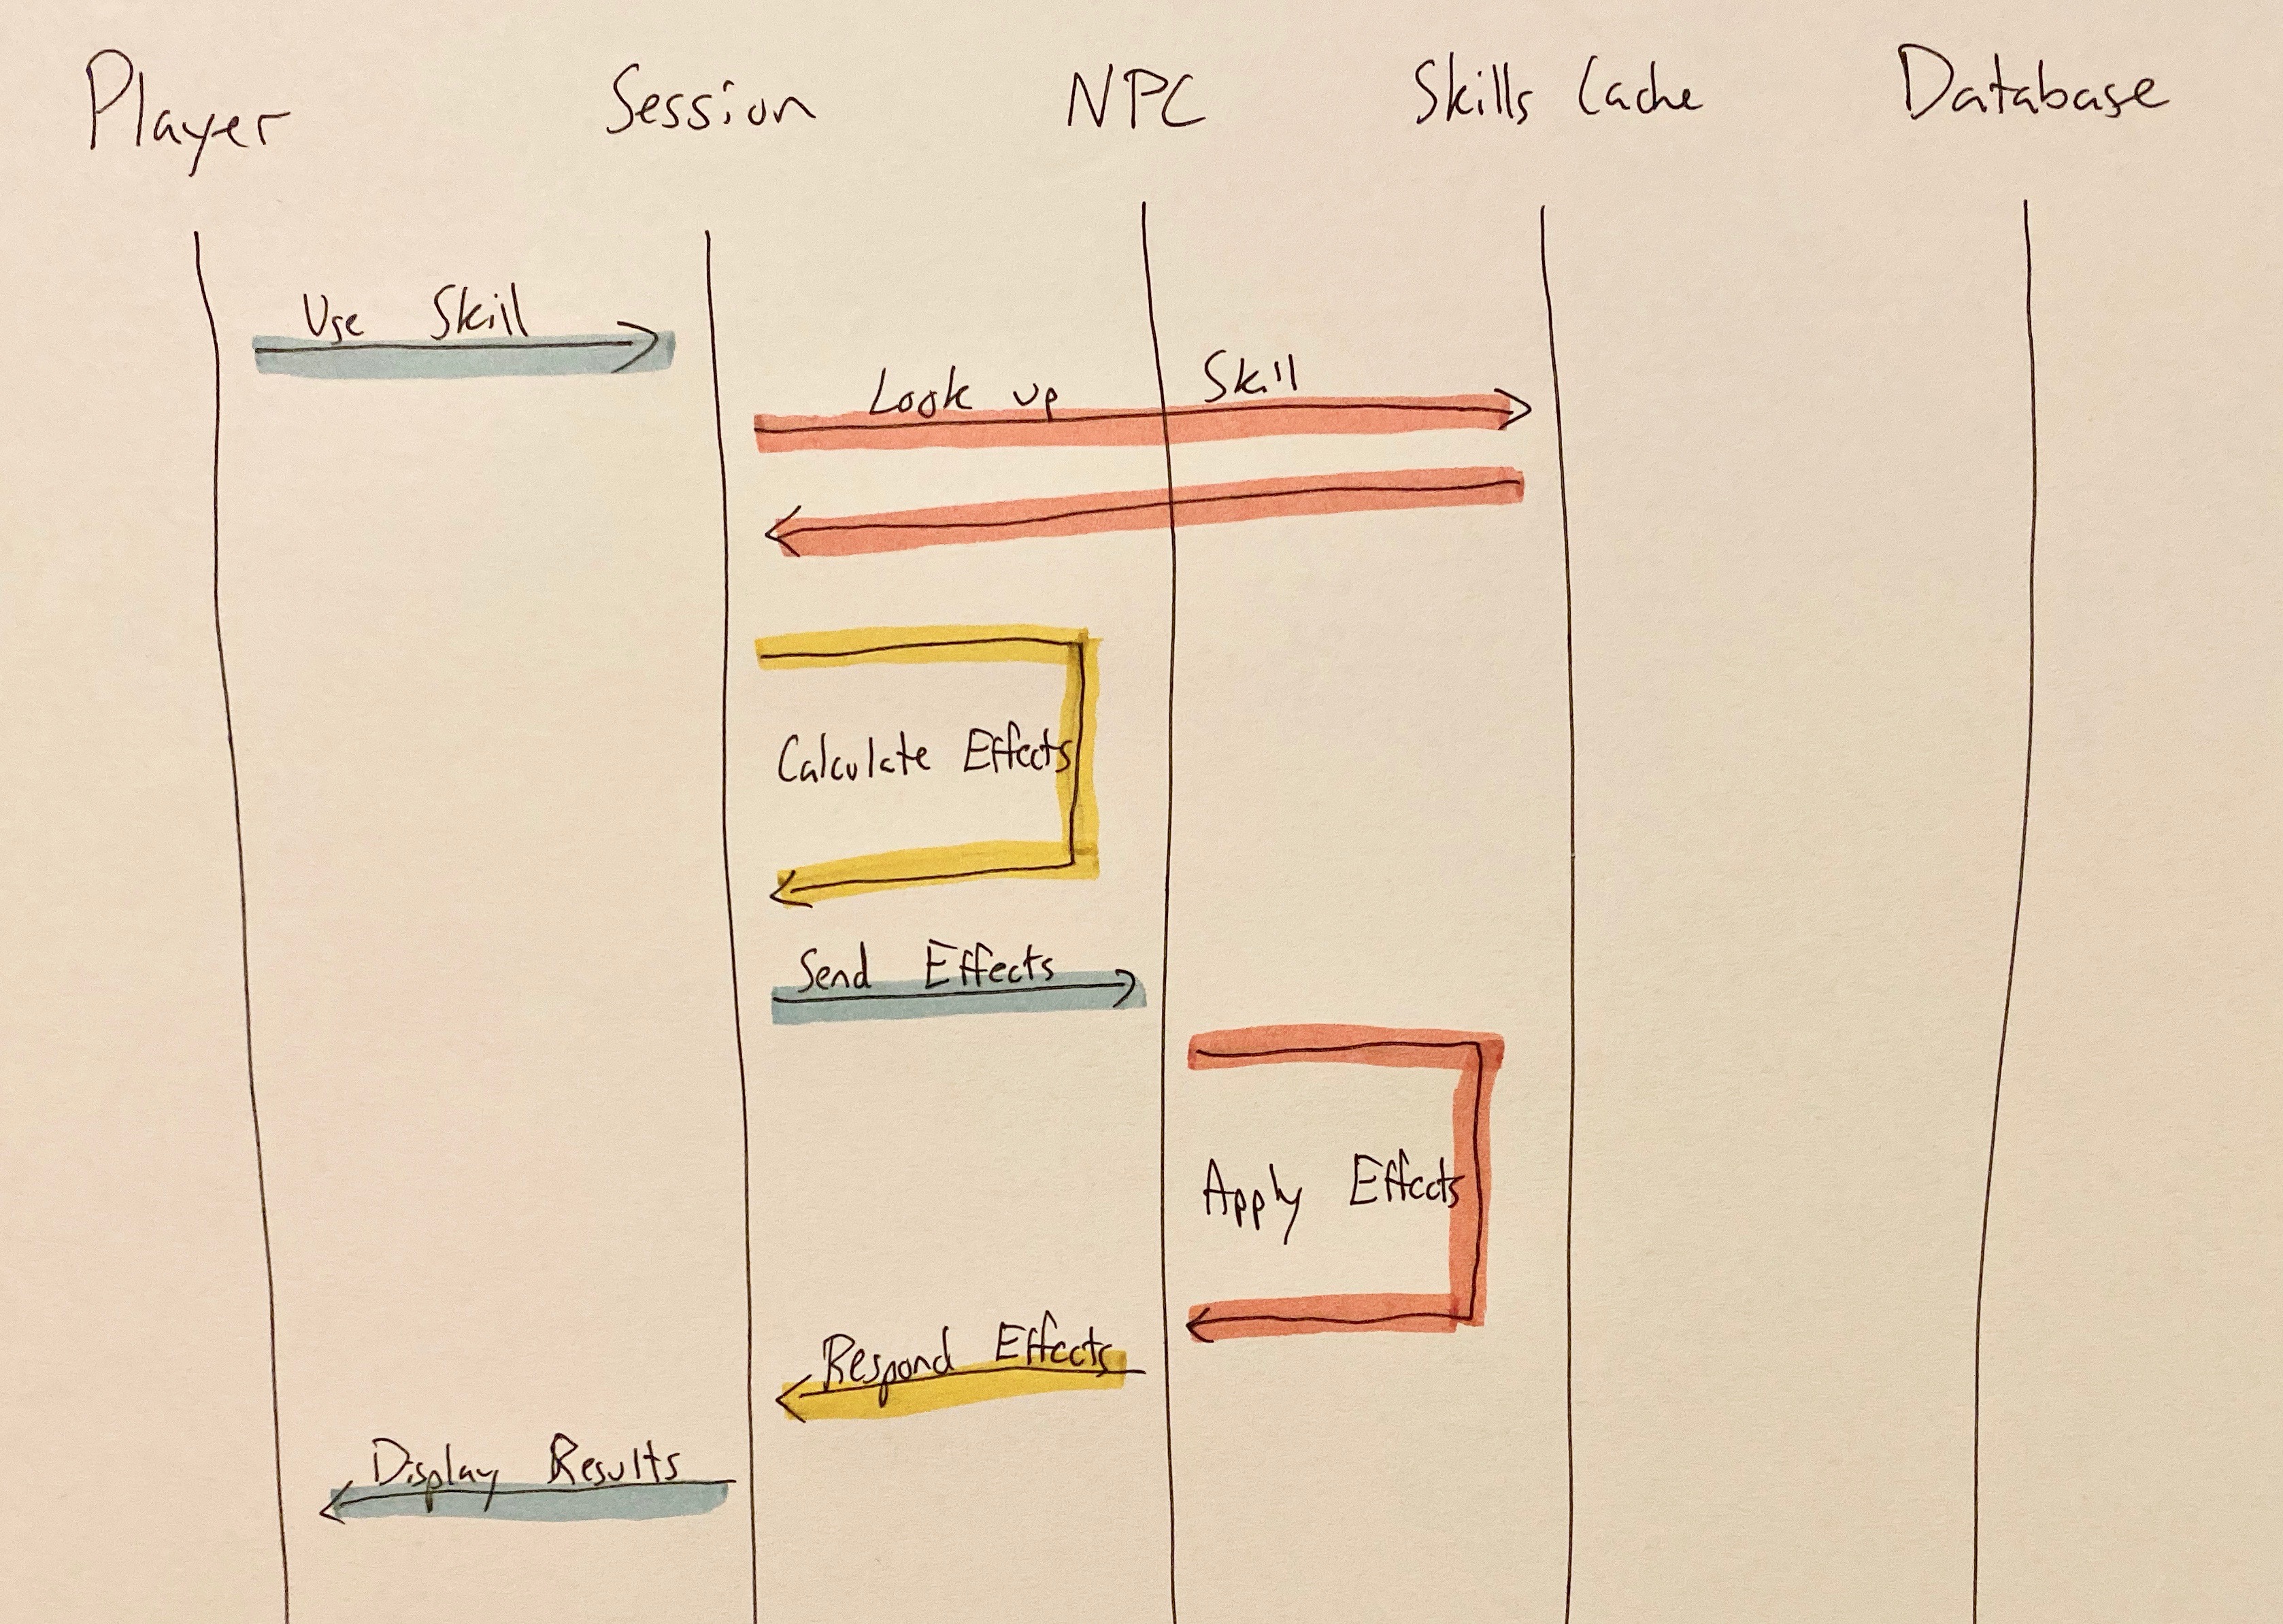 Player Session NPC Skills Cache Database
Use Skill
Look up Skill
Calculate Effects
Send Effects
Apply Effects
Respond Effects
Display Results